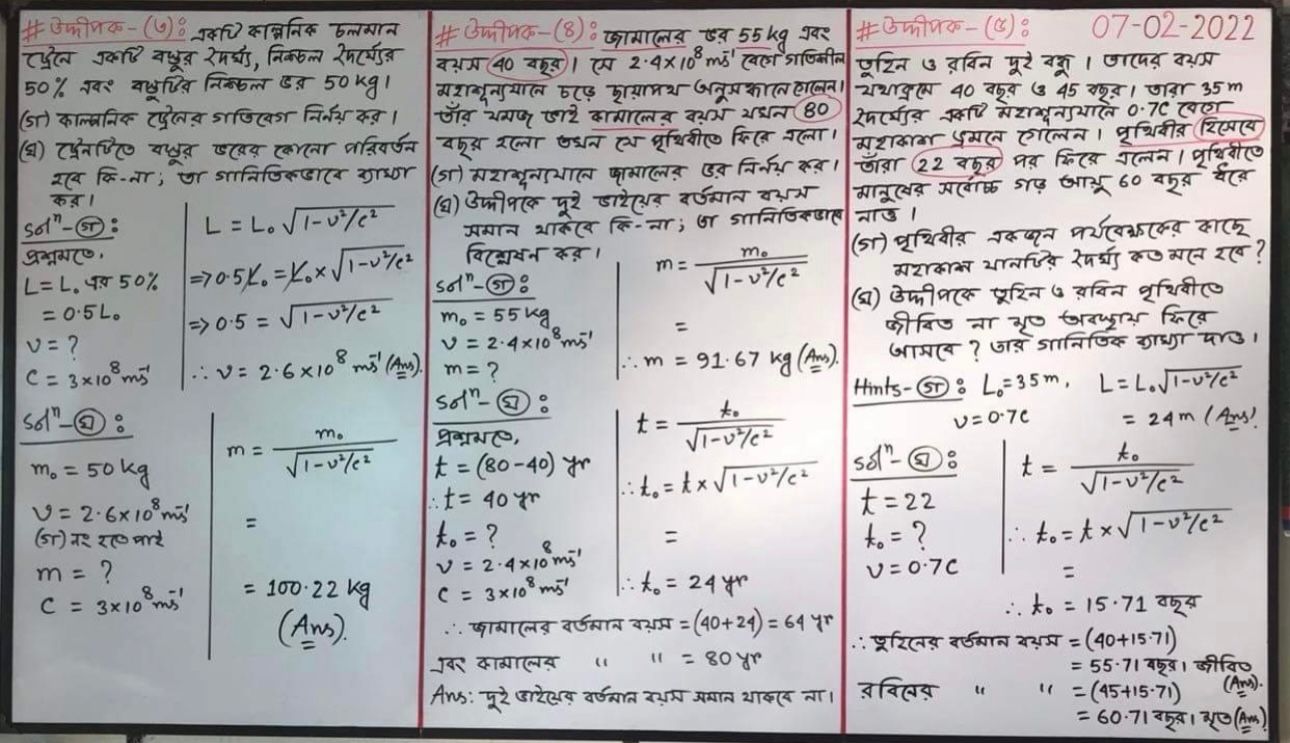 # উদ্দীপক-(৩): একটি কাল্পনিক চলমান
ট্রেনে একটি বস্তুর দৈর্ঘ্য, নিশ্চল দৈর্ঘ্যের
50% এবং বস্তুটির নিশ্চল ভর 50 kg।
(গ) কাল্পনিক ট্রেনের গতিবেগ নির্নয় কর।
(ঘ) ট্রেনটিতে বস্তুর ভরের কোনো পরিবর্তন
হবে কি-না; তা গানিতিকভাবে ব্যাখ্যা
কর।
Solⁿ-(গ):
প্রশ্নমতে,
L = L₀ এর 50%
= 0.5L₀
v = ?
C = 3×10⁸ ms⁻¹
L = L₀ √1-v²/c²
=> 0.5L₀ = L₀ × √1-v²/c²
=> 0.5 = √1-v²/c²
∴ v = 2.6×10⁸ ms⁻¹ (Ans).
Solⁿ-(ঘ):
m₀ = 50 kg
v = 2.6×10⁸ ms⁻¹
(গ) নং হতে পাই
m = ?
C = 3×10⁸ ms⁻¹
m = m₀ / √1-v²/c²
=
= 100.22 kg
(Ans).
# উদ্দীপক-(৪): জামালের ভর 55 kg এবং
বয়স 40 বছর। সে 2.4×10⁸ ms⁻¹ বেগে গতিশীল
মহাশূন্যযানে চড়ে ছায়াপথ অনুসন্ধানে গেলেন।
তাঁর যমজ ভাই কামালের বয়স যখন 80
বছর হলো তখন সে পৃথিবীতে ফিরে এলো।
(গ) মহাশূন্যযানে জামালের ভর নির্নয় কর।
(ঘ) উদ্দীপকে দুই ভাইয়ের বর্তমান বয়স
সমান থাকবে কি-না; তা গানিতিকভাবে
বিশ্লেষন কর।
Solⁿ-(গ):
m₀ = 55 kg
v = 2.4×10⁸ ms⁻¹
m = ?
m = m₀ / √1-v²/c²
=
∴ m = 91.67 kg (Ans).
Solⁿ-(ঘ):
প্রশ্নমতে,
t = (80-40) yr
∴ t = 40 yr
t₀ = ?
v = 2.4×10⁸ ms⁻¹
C = 3×10⁸ ms⁻¹
t = t₀ / √1-v²/c²
∴ t₀ = t × √1-v²/c²
=
∴ t₀ = 24 yr
∴ জামালের বর্তমান বয়স = (40+24) = 64 yr
এবং কামালের " " = 80 yr
Ans: দুই ভাইয়ের বর্তমান বয়স সমান থাকবে না।
# উদ্দীপক-(৫): 07-02-2022
তুহিন ও রবিন দুই বন্ধু। তাদের বয়স
যথাক্রমে 40 বছর ও 45 বছর। তারা 35 m
দৈর্ঘ্যের একটি মহাশূন্যযানে 0.7C বেগে
মহাকাশ ভ্রমনে গেলেন। পৃথিবীর হিসেবে
তাঁরা 22 বছর পর ফিরে এলেন। পৃথিবীতে
মানুষের সর্বোচ্চ গড় আয়ু 60 বছর ধরে
নাও।
(গ) পৃথিবীর একজন পর্যবেক্ষকের কাছে
মহাকাশ যানটির দৈর্ঘ্য কত মনে হবে?
(ঘ) উদ্দীপকে তুহিন ও রবিন পৃথিবীতে
জীবিত না মৃত অবস্থায় ফিরে
আসবে? তার গানিতিক ব্যাখ্যা দাও।
Hints-(গ): L₀ = 35 m, L = L₀√1-v²/c²
v = 0.7C = 24 m (Ans)
Solⁿ-(ঘ):
t = 22
t₀ = ?
v = 0.7C
t = t₀ / √1-v²/c²
∴ t₀ = t × √1-v²/c²
=
∴ t₀ = 15.71 বছর
∴ তুহিনের বর্তমান বয়স = (40+15.71)
= 55.71 বছর। জীবিত (Ans).
রবিনের " " = (45+15.71)
= 60.71 বছর। মৃত (Ans)